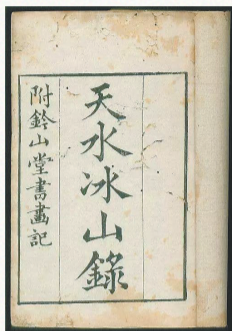 天水冰山錄
附鈐山堂書畫記